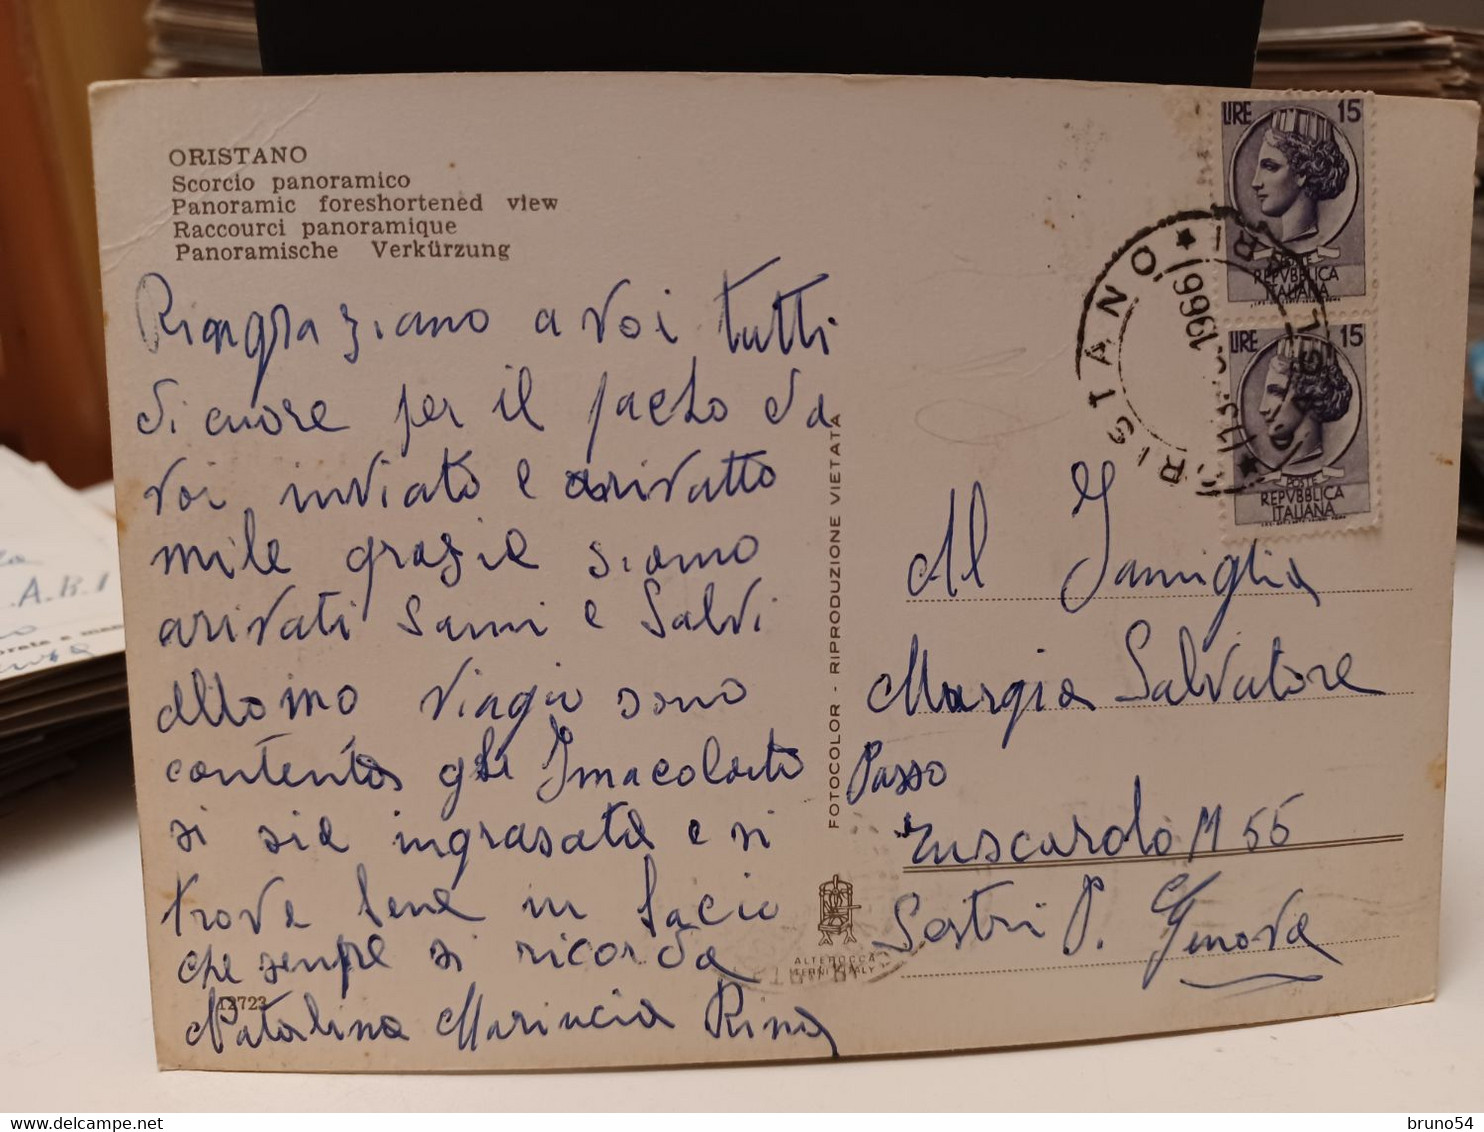 ORISTANO
Scorcio panoramico
Panoramic foreshortened view
Raccourci panoramique
Panoramische Verkürzung
Ringraziano a voi tutti
di cuore per il pacho da
voi inviato e arivatto
mile grazie siamo
arivati sani e salvi
viagio sono
contenta Imacolata
si sia ingrasata e si
trova bene in
che senpre si ricorda
Natalina Marinucia Rina
12723
FOTOCOLOR - RIPRODUZIONE VIETATA
ALTEROCCA
TERNI ITALY
LIRE 15
POSTE
REPVBBLICA
ITALIANA
LIRE 15
POSTE
REPVBBLICA
ITALIANA
ORISTANO
1966
Al Famiglia
Margia Salvatore
Passo
Tuscardo N 55
Sestri P. Genova
A.R.I
bruno54